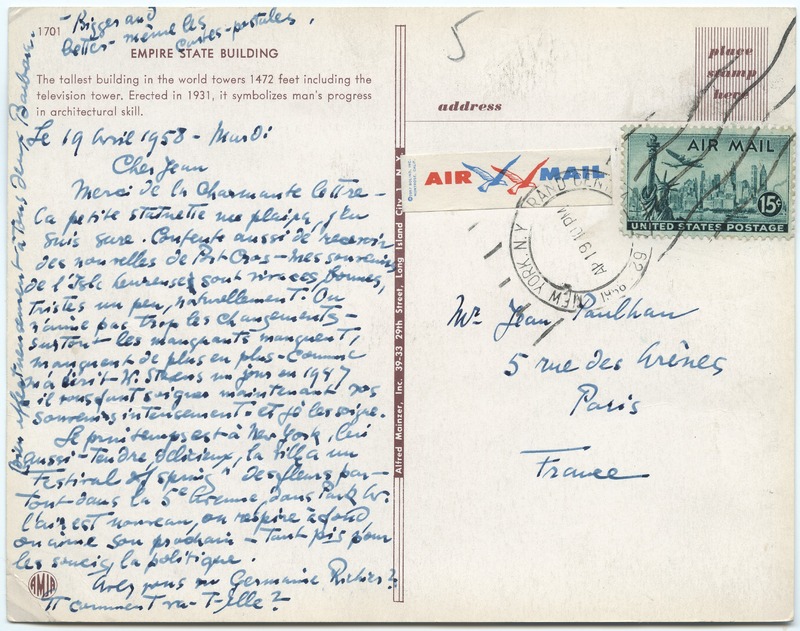 - Bigger and
better - même les
cartes-postales.
1701
EMPIRE STATE BUILDING
The tallest building in the world towers 1472 feet including the
television tower. Erected in 1931, it symbolizes man's progress
in architectural skill.
Le 19 Avril 1958 - Mardi
Cher Jean
Merci de la Charmante lettre -
La petite statuette me plaira, j'en
suis sure. Contente aussi de recevoir
des nouvelles de Port Cros - mes souvenirs
de l'Isle heureuse sont vivaces, bonnes,
tristes un peu, naturellement. On
n'aime pas trop les changements -
surtout - les manquants manquent,
manquent de plus en plus - Comme
m'a écrit W. Stevens un jour en 1947
il nous faut soigner maintenant nos
souvenirs intensement - et je les soigne.
Le printemps est à New York, lui
aussi - Tendre, délicieux, la ville a un
Festival of Spring, des fleurs par-
tout dans la 5e Avenue, dans Park Av.
l'air est nouveau, on respire à fond
on aime son prochain - tant pis pour
les soucis, la politique.
Avez vous vu Germaine Richier?
Et comment va-t-elle?
Bien affectueusement à tous deux Barbara
AMJA
Alfred Mainzer, Inc. 39-33 29th Street, Long Island City 1, N. Y.
5
place
stamp
here
address
AIR MAIL
AIR MAIL
15¢
UNITED STATES POSTAGE
GRAND CENTRAL
NEW YORK, N.Y.
AP 19 10 PM
1958
62
Mr Jean Paulhan
5 rue des Arènes
Paris
France